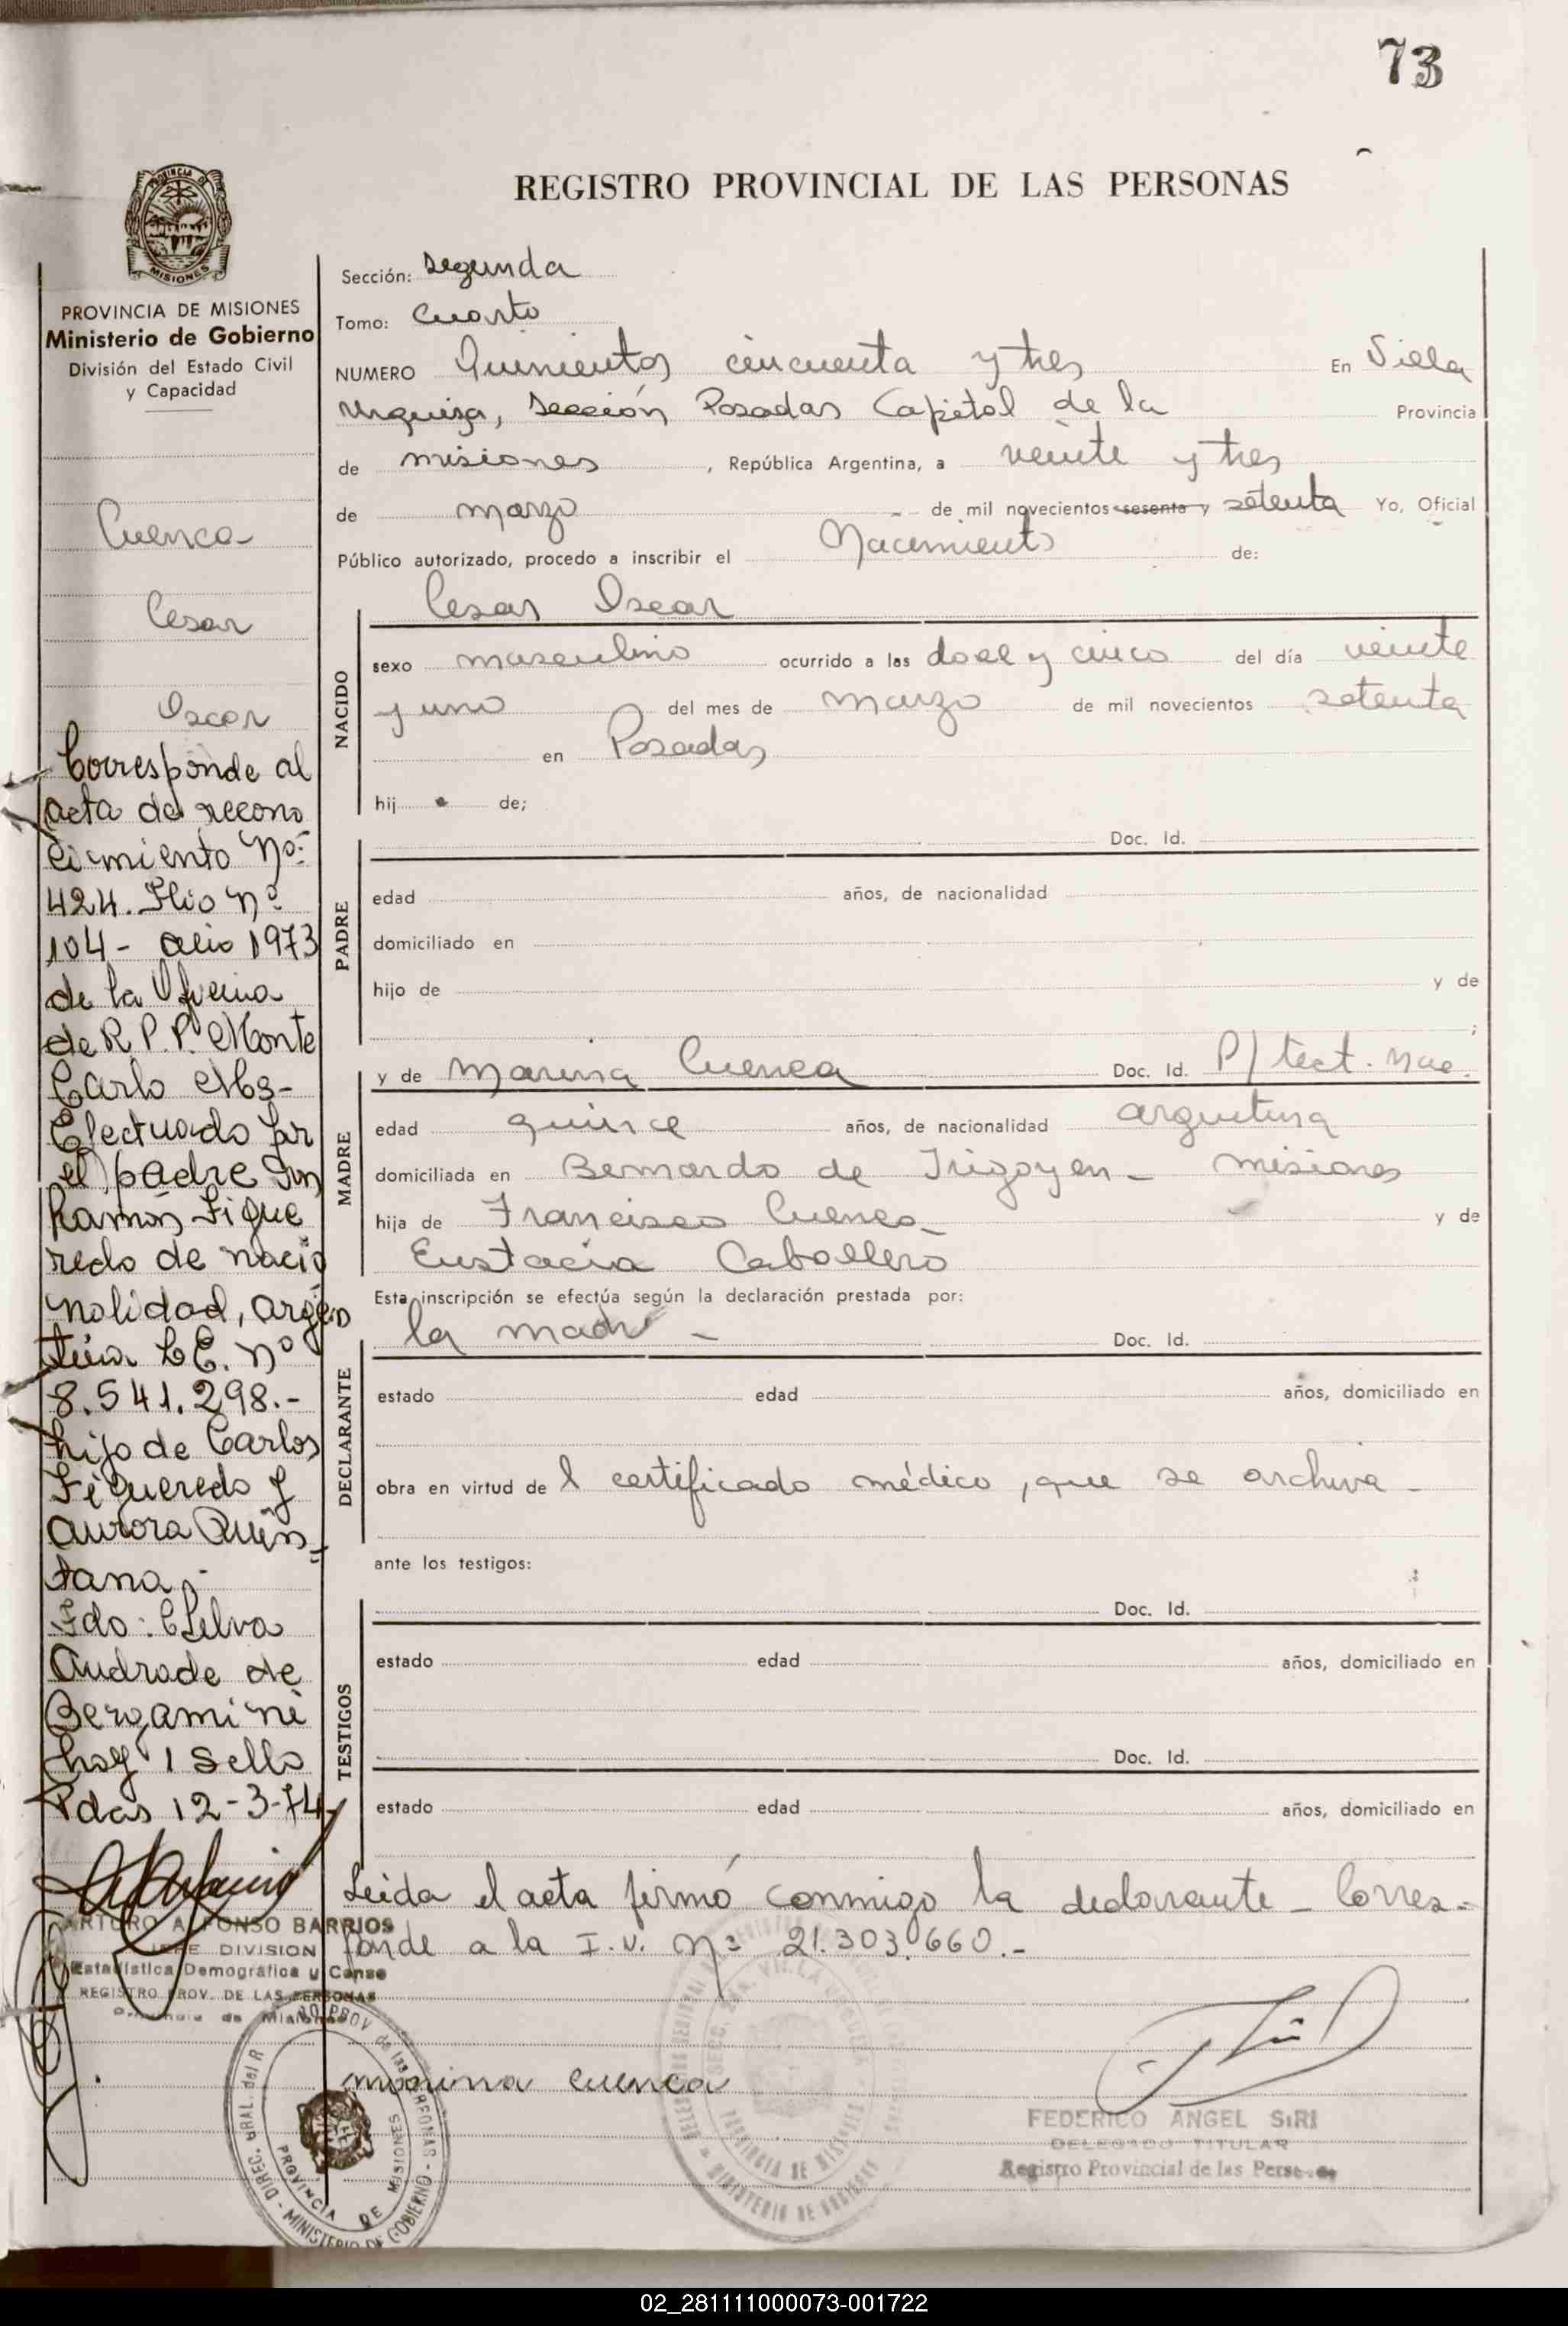 73
REGISTRO PROVINCIAL DE LAS PERSONAS
PROVINCIA DE MISIONES
Ministerio de Gobierno
División del Estado Civil
y Capacidad
Cuenca
Cesar
Oscar
Corresponde al
acta de recono
cimiento Nº
424. Folio Nº
104 - año 1973
de la Oficina
de R.P.P. Monte
Carlo Ms-
Efectuado por
el padre
Ramón Figue
redo de nacio
nalidad, argen
tina L.E. Nº
8.541.298.-
hijo de Carlos
Figueredo y
Aurora Quin-
tana.-
Fdo: Selva
Andrade de
Bergamini
hay 1 sello
Pdas 12-3-74
ARTURO ALFONSO BARRIOS
JEFE DIVISION
Estadística Demográfica y Censo
REGISTRO PROV. DE LAS PERSONAS
Provincia de Misiones
Sección: Segunda
Tomo: Cuarto
NUMERO Quinientos cincuenta y tres En Villa
Urquiza, Sección Posadas Capital de la Provincia
de misiones, República Argentina, a veinte y tres
de marzo de mil novecientos sesenta y setenta Yo, Oficial
Público autorizado, procedo a inscribir el Nacimiento de:
NACIDO
Cesar Oscar
sexo masculino ocurrido a las doce y cinco del día veinte
y uno del mes de marzo de mil novecientos setenta
en Posadas
hij de;
PADRE
Doc. Id.
edad años, de nacionalidad
domiciliado en
hijo de y de
;
MADRE
y de Marina Cuenca Doc. Id. P/ tect. nac.
edad quince años, de nacionalidad argentina
domiciliada en Bernardo de Irigoyen - misiones
hija de Francisco Cuenca y de
Eustacia Caballero
Esta inscripción se efectúa según la declaración prestada por:
DECLARANTE
la madre - Doc. Id.
estado edad años, domiciliado en
obra en virtud de l certificado médico, que se archiva -
ante los testigos:
TESTIGOS
Doc. Id.
estado edad años, domiciliado en
Doc. Id.
estado edad años, domiciliado en
Leida el acta firmó conmigo la declarante - Corres-
ponde a la I.V. Nº 21.303.660.-
marina cuenca
FEDERICO ANGEL SIRI
DELEGADO TITULAR
Registro Provincial de las Personas
PROVINCIA DE MISIONES
02_281111000073-001722